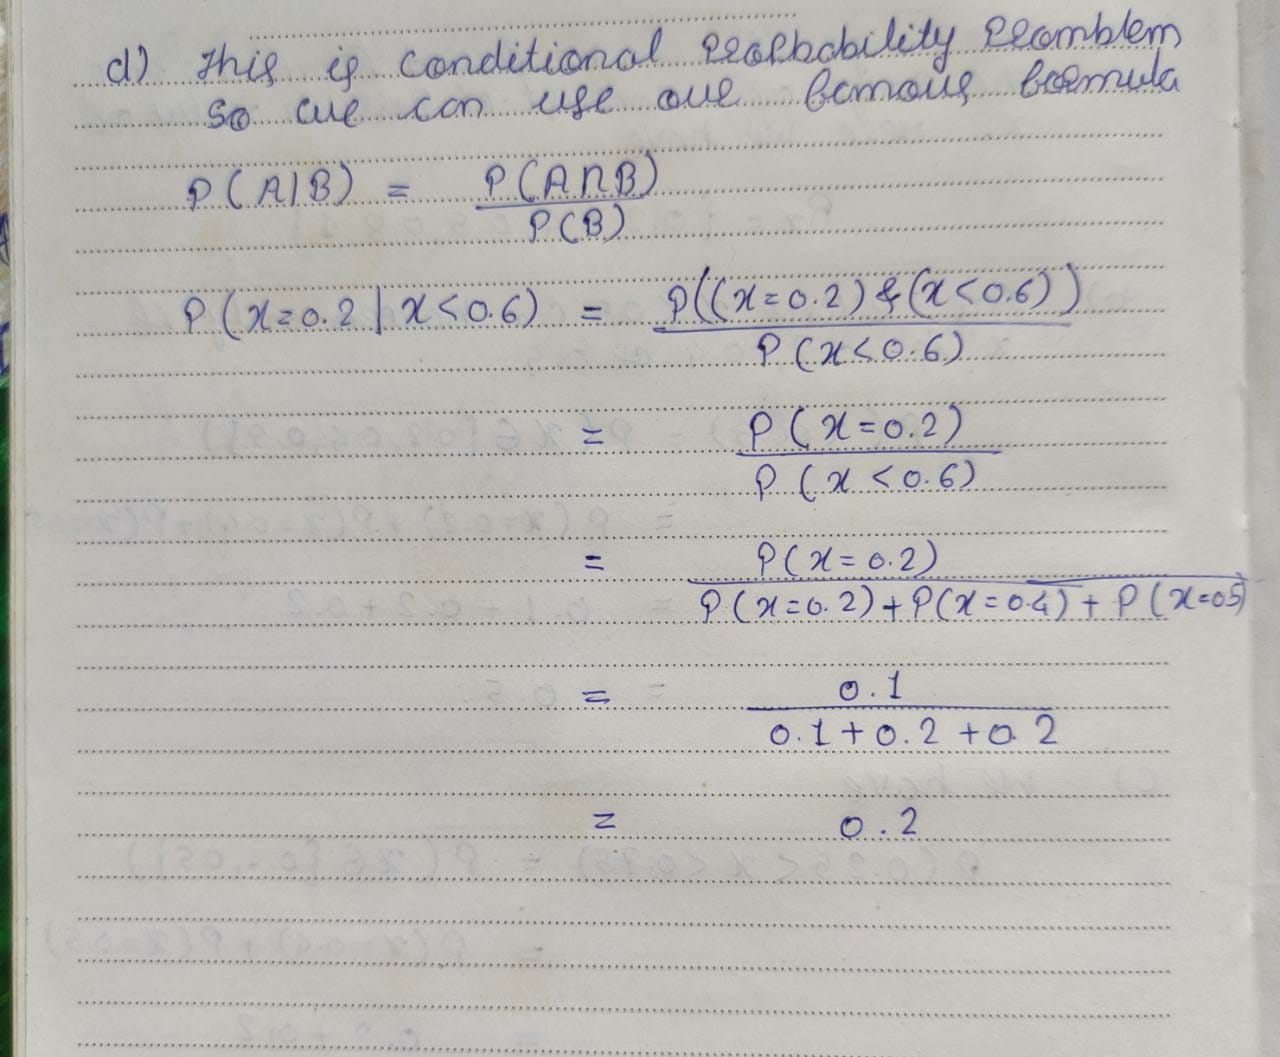 d) This is conditional Proabbability Promblem
so we can use our famous formula
P(A|B) = P(A∩B)
P(B)
P(x=0.2 | x<0.6) = P((x=0.2) & (x<0.6))
P(x<0.6)
= P(x=0.2)
P(x<0.6)
= P(x=0.2)
P(x=0.2)+P(x=0.4)+P(x=0.5)
= 0.1
0.1+0.2+0.2
= 0.2